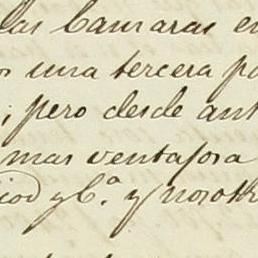 las Camaras en
una tercera po
; pero desde ant
mas ventajosa
iod y Cª. y nosotr